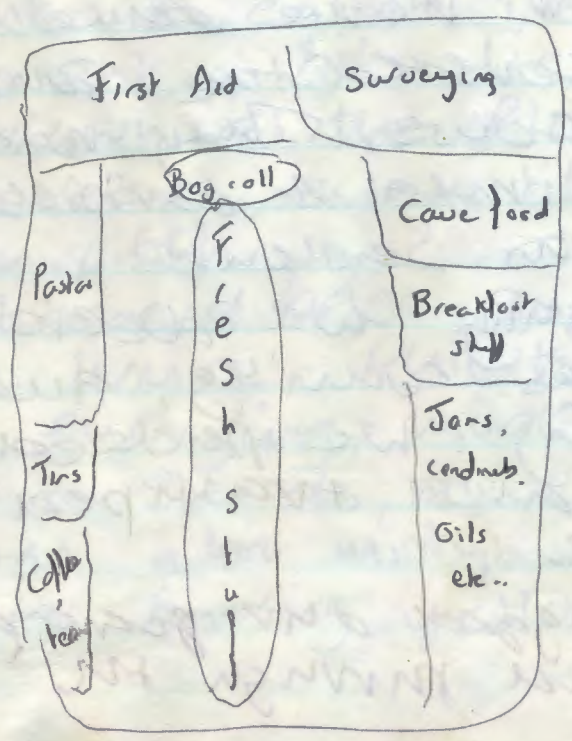 First Aid
Surveying
Bog roll
Cave food
Pasta
Fresh stuff
Breakfast
stuff
Tins
Jars,
condiments.
Oils
etc..
Coffee,
tea